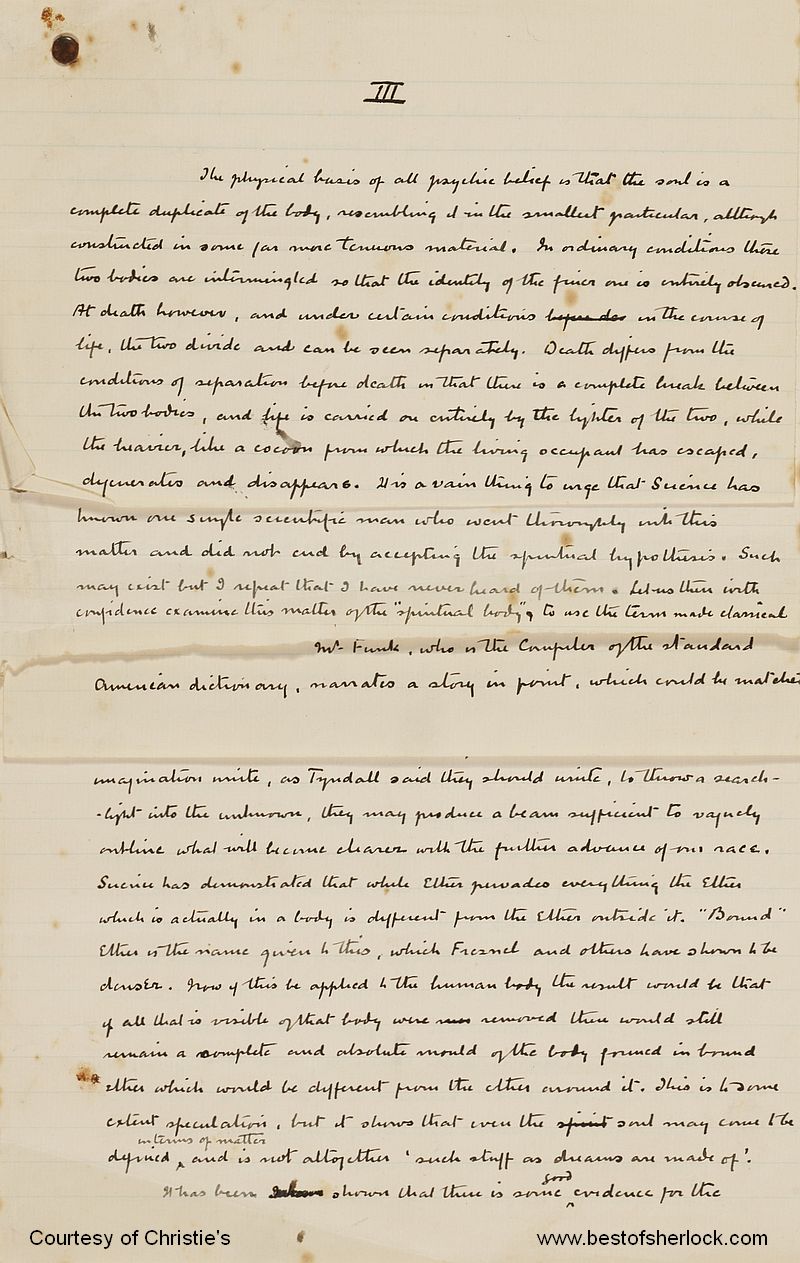 III
The physical basis of all psychic belief is that the soul is a
complete duplicate of the body, resembling it in the smallest particular, although
constructed in some far more tenuous material. In ordinary conditions these
two bodies are intermingled so that the identity of the finer one is entirely obscured.
At death however, and under certain conditions in the course of
life, the two divide and can be seen separately. Death differs from the
conditions of separation before death in that there is a complete break between
the two bodies, and life is carried on entirely by the lighter of the two, while
the heavier, like a cocoon from which the living occupant has escaped,
degenerates and disappears. It is a vain thing to urge that Science has
known one single scientific man who went thoroughly into this
matter and did not end by accepting the spiritual hypothesis. Such
may exist but I repeat that I have never heard of them. Let us then with
confidence examine this matter of the "spiritual body", to use the term made classical
Mr Funk, who is the Compiler of the standard
American dictionary, narrates a story in point, which could be matched
imagination unite, as Tyndall said they should unite, to throw a search-
-light into the unknown, they may produce a beam sufficient to vaguely
outline what will become clearer with the further advance of our race.
Science has demonstrated that while Ether pervades everything the Ether
which is actually in a body is different from the Ether outside it. "Bound"
Ether is the name given to this, which Fresnel and others have shown to be
denser. Now if this be applied to the human body the result would be that
if all that is visible of that body were removed there would still
remain a complete and absolute mould of the body formed in bound
ether which would be different from the ether around it. This is to some
extent speculation, but it shows that even the spirit soul may come to be
in terms of matter
defined and is not altogether 'such stuff as dreams are made of'.
good
It has been shown that there is some evidence for the
Courtesy of Christie's
www.bestofsherlock.com